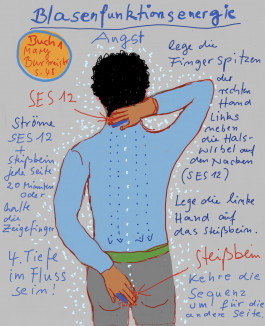 Blasenfunktionsenergie
Angst
Buch 1
Mary
Burmeister
S. 43
SES 12
Lege die
Fingerspitzen
der
rechten
Hand
Links
neben
die Hals-
wirbel auf
den Nacken
(SES 12)
Ströme
SES 12
+
Steißbein
jede Seite
20 Minuten oder
halte die
Zeigefinger
4. Tiefe
im Fluss
sein!
Lege die linke
Hand auf
das Steißbein.
Steißbein
Kehre die
Sequenz
um für die
andere Seite.